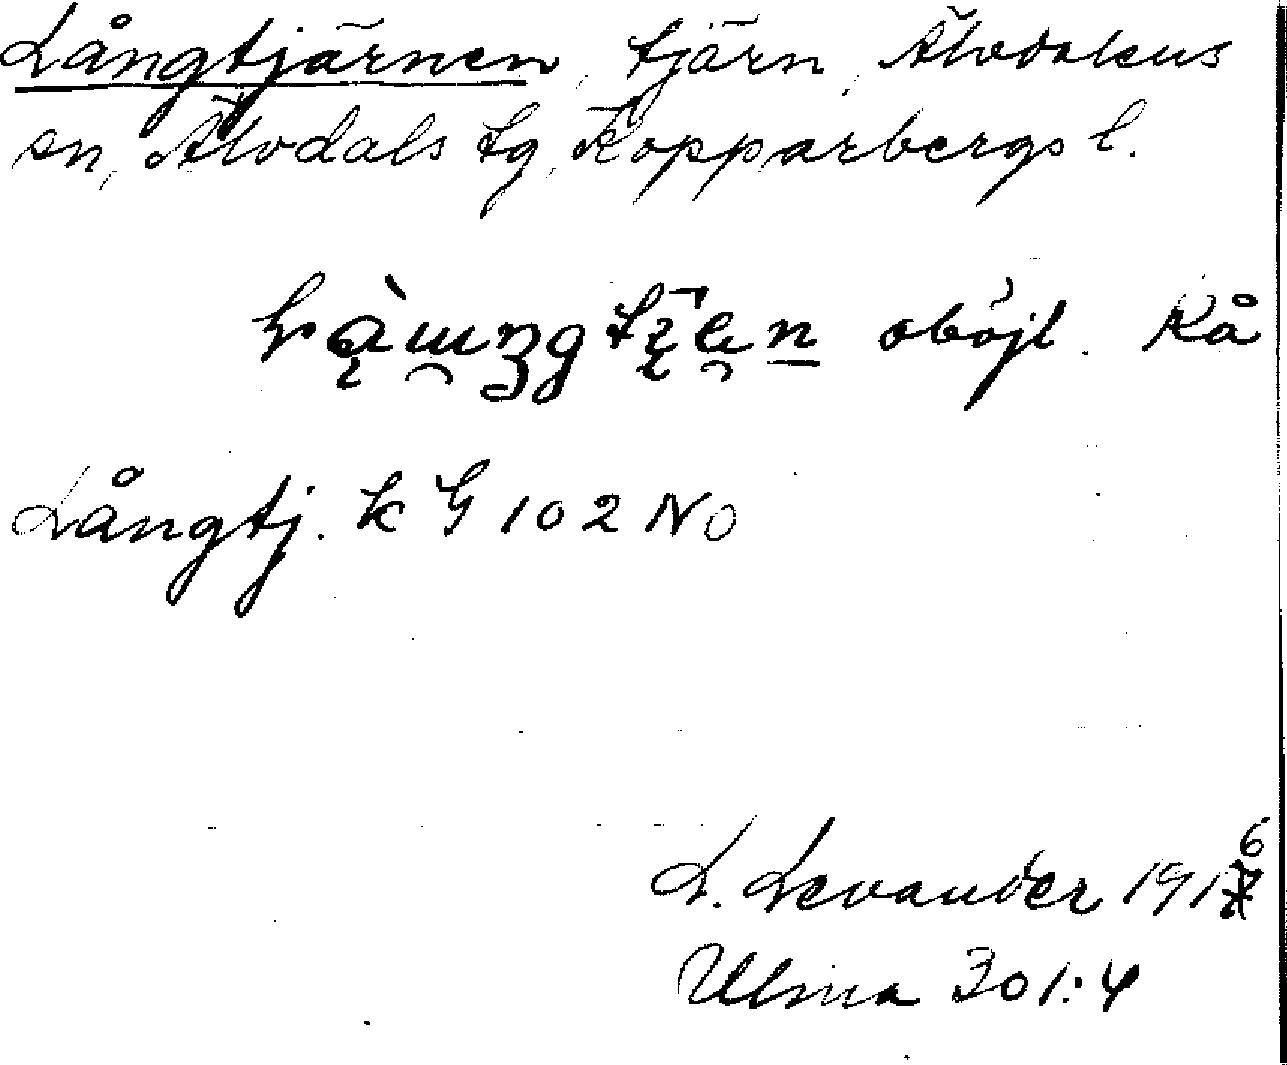 Långtjärnen, tjärn, Älvdalens
sn, Älvdals tg, Kopparbergs l.
oböjl. Kå
Långtj. k G 102 NO
L. Levander 1916
Ulma 301:4